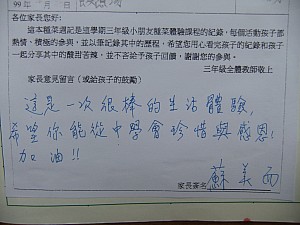 99年 月 日
各位家長您好:
這本種菜週記是這學期三年級小朋友種菜體驗課程的紀錄,每個活動孩子都
熱情、積極的參與,並以筆記錄其中的歷程,希望您用心看完孩子的紀錄和孩子
一起分享其中的酸甜苦辣,並不吝給予孩子回饋,謝謝您的參與。
三年級全體教師敬上
家長意見留言(或給孩子的鼓勵)
這是一次很棒的生活體驗,
希望你能從中學會珍惜與感恩!
加油!!
家長簽名